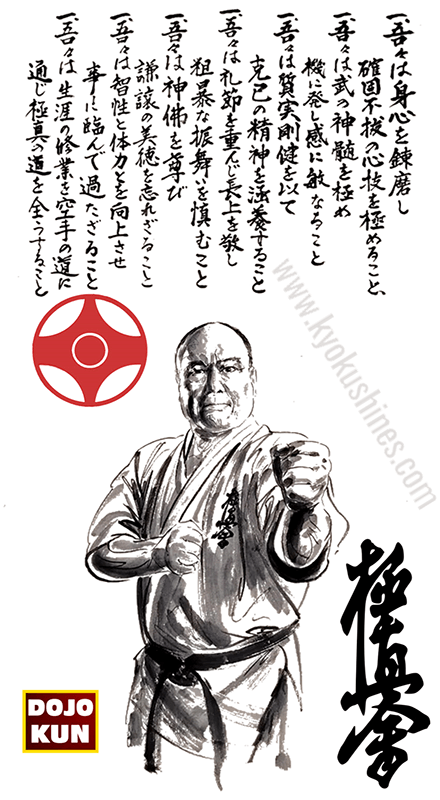 一、吾々は身心を錬磨し
確固不抜の心技を極めること、
一、吾々は武の神髄を極め
機に発し感に敏なること
一、吾々は質実剛健を以て
克己の精神を涵養すること
一、吾々は礼節を重んじ長上を敬し
粗暴な振舞いを慎むこと
一、吾々は神佛を尊び
謙譲の美徳を忘れざること
一、吾々は智性と体力とを向上させ
事に臨んで過たざること
一、吾々は生涯の修業を空手の道に
通じ極真の道を全うすること
www.kyokushines.com
極真会
極真会
DOJO
KUN